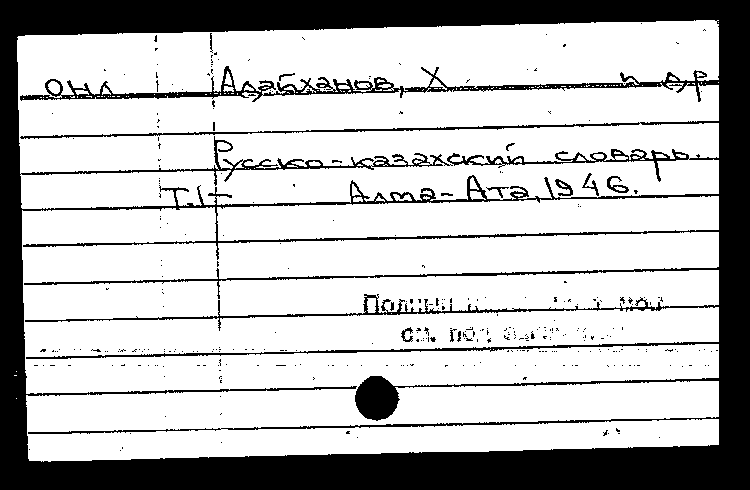 ОНЛ Адабханов, Х и др
Русско-казахский словарь.
Т.1- Алма-Ата, 1946.
Полный
см. под